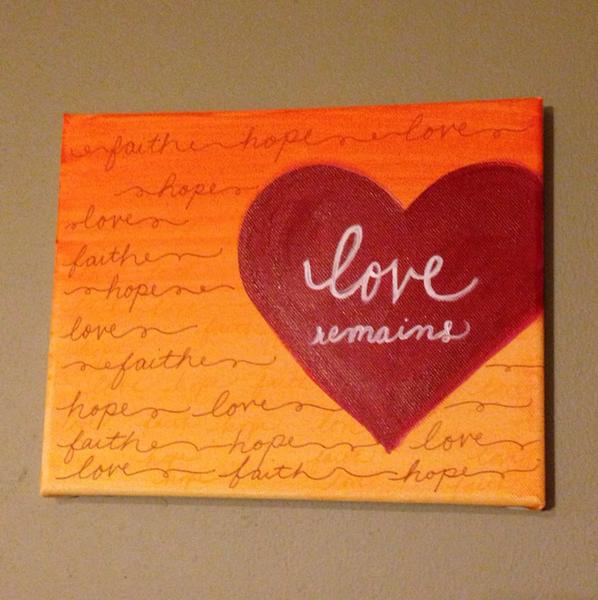 faith hope love
hope
love
faith
hope
love
faith
hope love
faith hope love
love faith hope
love
remains